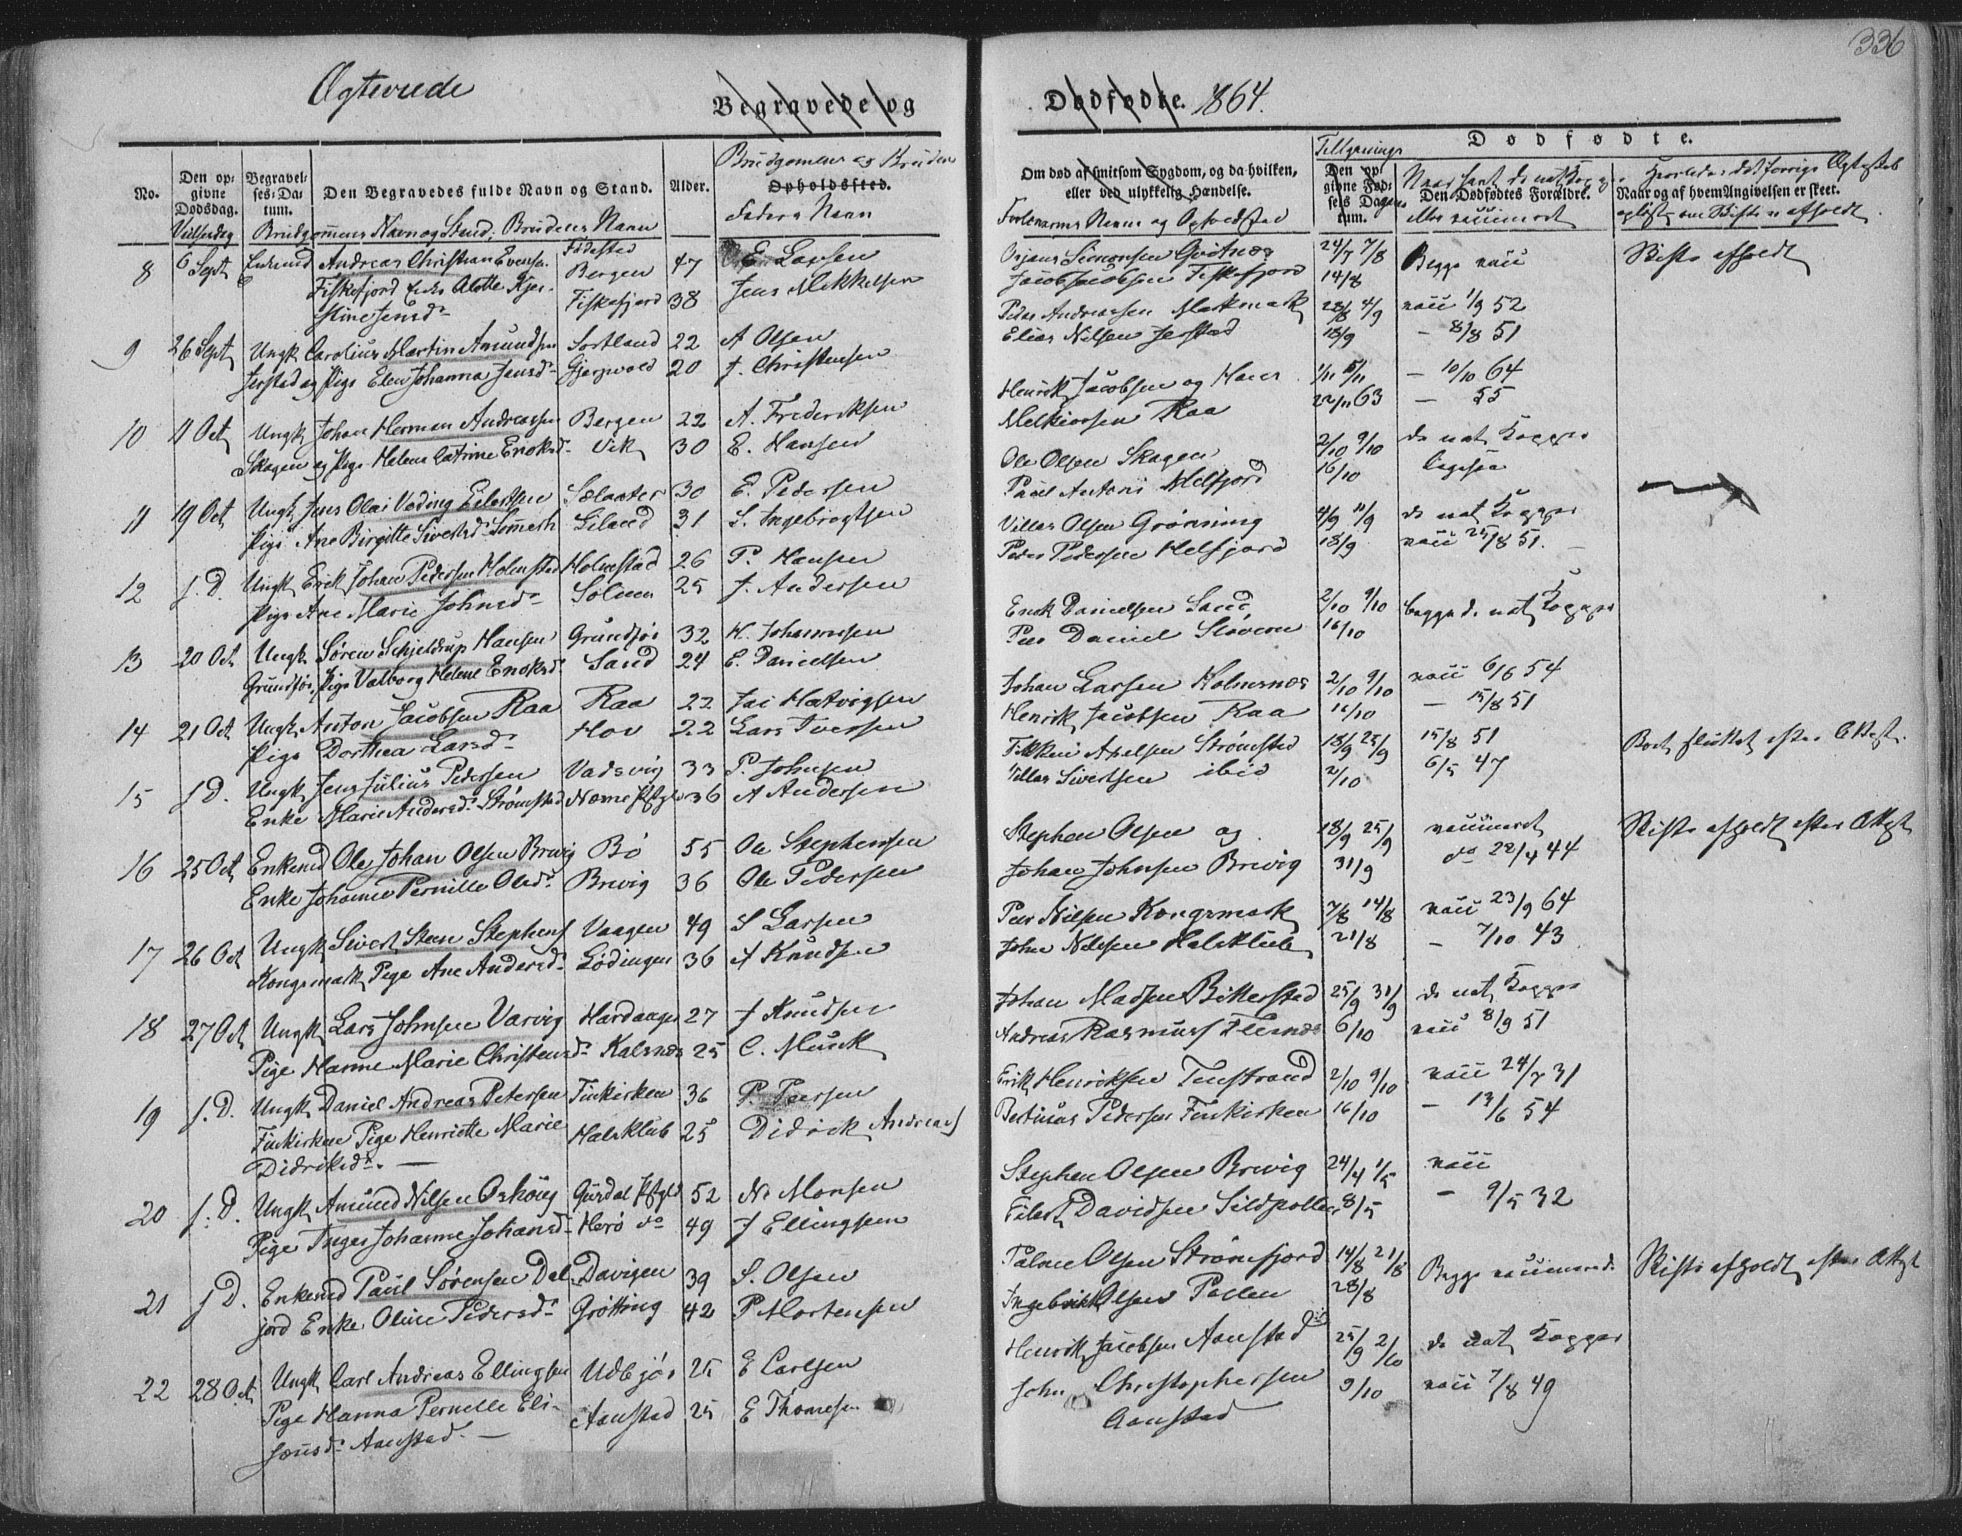 336
Ægteviede
Begravede og Dødfødte. 1864.
Brudgomens og Brudens
Tillysnings
Dødfødte.
No.
Den opgivne Dødsdag.
Begravelses-Datum.
Den Begravedes fulde Navn og Stand.
Alder.
Opholdssted.
Om død af smitsom Sygdom, og da hvilken, eller ved ulykkelig Hændelse.
Den opgivne Fødsels Datum.
Den Dødfødtes Forældre.
Naar og af hvem Angivelsen er skeet.
Vielsedag
Brudgommens Navn og Stand, Brudens Navn
Fødested
Faders Navn
Forlovernes Navne og Opholdssted
Dagene
eller vaccineret
8 6 Sept Enkemd Andreas Christian Evensen Bergen 47 E Larsen
Fiskefjord
Fiskefjord 38 Jens Mikkelsen
stine Jensd.
Jacob Jacobsen Fiskefjord 24/7 7/8 14/8 Begge vacc Skifte afholdt
9 26 Sept Ungk Carolius Martin Amundsen Sortland 22 A Olsen
Jerstad og Pige Elen Johanna Jensd. 20 J. Christensen
Peder Andreassen 28/8 4/9 vacc 1/9 52
Elias Nilsen Jerstad 18/9 — 8/8 51
10 11 Oct Ungk Johan Herman Andreassen Bergen 22 A. Frederiksen
Skagen og Pige Helene Catrine Enoksd. Vik 30 E. Hansen
Henrik Jacobsen og Hans 1/11 — 10/10 64
Melkiorsen Raa 22/11 63 — 55
Ole Olsen Skagen 2/10 9/10 do nat Kopper
Paul Antoni Melfjord 16/10 ligesaa
11 19 Oct Ungk Jens Olai Eilertsen 30 E. Pedersen
Pige Ane Birgitte Sivertsd. 31 S. Ingebrigtsen
Villas Olsen Grønning 4/9 11/9 do nat Kopper
Peder Pedersen Melfjord 18/9 vacc 25/8 51.
12 s. D. Ungk Erik Johan Pedersen Holmstad Holmstad 26 P. Hansen
Pige Ane Marie Johnsd. 25 J. Andersen
Erik Danielsen Sand 2/10 9/10 begge d. nat Kopper
Peer Daniel 16/10
13 20 Oct Ungk Søren Schjeldrup Hansen Grundfør 32 H. Johannesen
Grundfør, Pige Valborg Helene Enoksd. Sand 24 E. Danielsen
14 21 Oct Ungk Anton Jacobsen Raa Raa 22
Pige Dorthea Larsd. Hov 22 Lars Iversen
Johan Larsen Holmsnes 2/10 9/10 vacc 6/6 54
Henrik Jacobsen Raa 16/10 — 15/8 51
15 s D. Ungk Jens Julius Pedersen Vadsvig 33 P. Johnsen
Enke Marie Andersd. Strømstad 36 A Andersen
Axelsen Strømstad 18/9 25/9 15/8 51
Villas Sivertsen ibid 2/10 6/5 47
16 25 Oct Enkemd Ole Johan Olsen Brevig Bø 55 Ole Stephensen
Enke Johanne Pernille Olsd. Brevig 36 Ole Pedersen
Stephen Olsen og 18/9 25/9 vaccineret Skifte afholdt efter Attest
Johan Johnsen Brevig 31/9 do 22/4 44
17 26 Oct Ungk Sivert Steen Stephens Vaagen 49 S Larsen
Kongsmark Pige Ane Andersd. Lødingen 36 A Knudsen
Peer Nilsen Kongsmark 7/8 14/8 vacc 23/9 64
John Nilsen Halsklub 21/8 — 7/10 43
18 27 Oct Ungk Lars Johnsen Varvig Hardanger 27 J Knudsen
Pige Hanne Marie Christensd. Kalsnes 25 C. Munk
Johan Madsen Bitterstad 25/9 31/9 do nat Kopper
Andreas Rasmus Flesnes 6/10 vacc 8/9 51
19 s. D. Ungk Daniel Andreas Petersen Finkirken 36 P. Peersen
Finkirken Pige Henriette Marie Halsklub 25 Didrik Andreas
Didriksd. —
Erik Henriksen Tenstrand 2/10 9/10 vacc 24/7 31
Bertinus Pedersen Finkirken 16/10 — 13/6 54
20 s: D. Ungk Amund Nilsen Oshoug 52 Ns Monsen
Pige Inger Johanne Johansd. Herø do 49 J Ellingsen
Stephen Olsen Brevig 24/4 1/5 vacc
Eilert Davidsen Sildpollen 8/5 — 9/5 32
21 s D. Enkemd Paul Sørensen Dal Davigen 39 S. Olsen
jord Enke Oline Pedersd. Grøtting 42 P Mortensen
Olsen Strømfjord 14/8 21/8 Begge vaccinerede Skifte afholdt efter Attest
Ingebrikt Olsen Pollen 28/8
22 28 Oct Ungk Carl Andreas Ellingsen 25 E Carlsen
Pige Hanna Pernelle Eli- Aanstad 25 E Thomesen
sæusd. Aanstad. —
Henrik Jacobsen Aanstad 25/9 2/10 do nat Kopper
John Christophersen 9/10 vacc 7/8 49
Aanstad